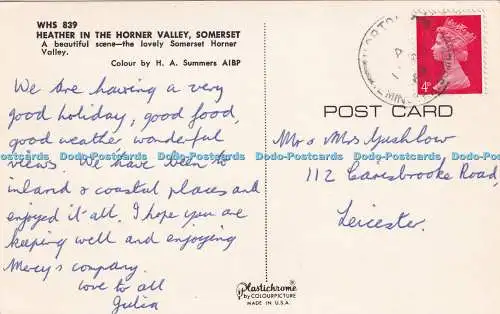 WHS 839
HEATHER IN THE HORNER VALLEY, SOMERSET
A beautiful scene—the lovely Somerset Horner
Valley.
Colour by H. A. Summers AIBP
We are having a very
good holiday, good food,
good weather wonderful
views. We have been to
inland & coastal places and
enjoyed it all. I hope you are
keeping well and enjoying
Mercy's company.
love to all
Julia
Plastichrome
by COLOURPICTURE
MADE IN U.S.A.
4P
POST CARD
Mr & Mrs
112 Carisbrooke Road
Leicester.
Dodo-Postcards Dodo-Postcards Dodo-Postcards Dodo-Postcards Dodo-Postcards